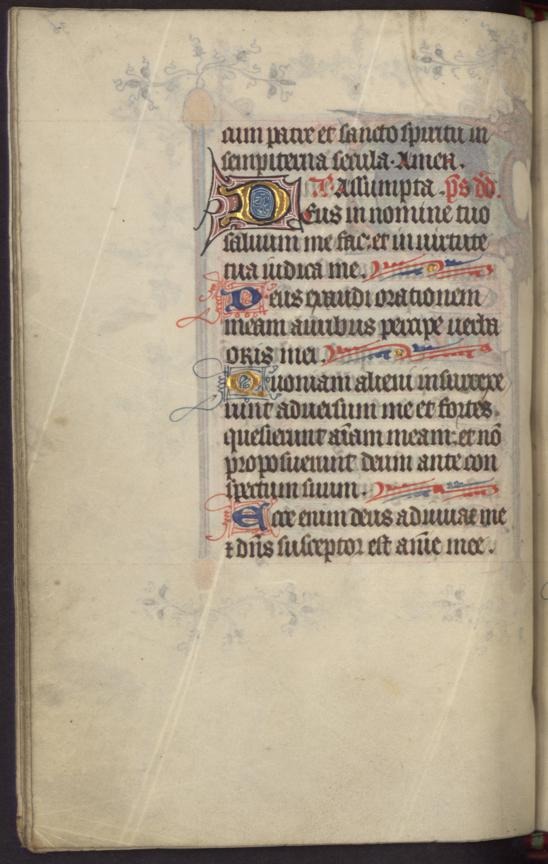 cum patre et sancto spiritu in
sempiterna secula. Amen.
A. Assumpta. ps dd.
Deus in nomine tuo
saluum me fac: et in uirtute
tua iudica me.
Deus exaudi orationem
meam auribus percipe uerba
oris mei.
Quoniam alieni insurrexe
runt aduersum me et fortes
quesierunt aīam meam: et nō
proposuerunt deum ante con
spectum suum.
Ecce enim deus adiuuat me
⁊ dn̄s susceptor est anīe mee.